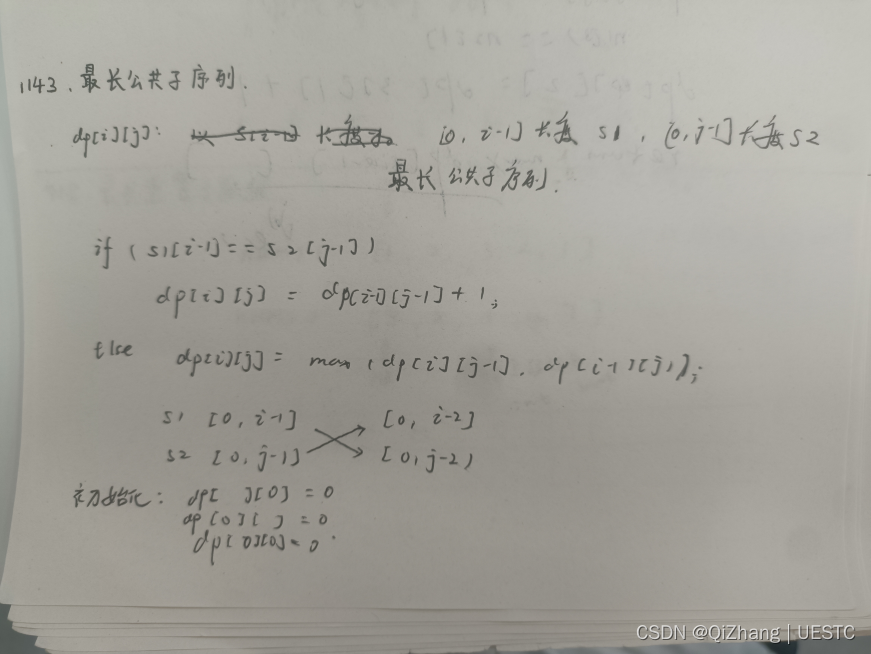 1143. 最长公共子序列.
dp[i][j]: [0, i-1] 长度 s1, [0, j-1] 长度 s2
最长公共子序列.
if (s1[i-1] == s2[j-1])
dp[i][j] = dp[i-1][j-1] + 1;
else dp[i][j] = max(dp[i][j-1], dp[i-1][j]);
s1 [0, i-1] [0, i-2]
s2 [0, j-1] [0, j-2]
初始化: dp[ ][0] = 0
dp[0][ ] = 0
dp[0][0] = 0.
CSDN @QiZhang | UESTC